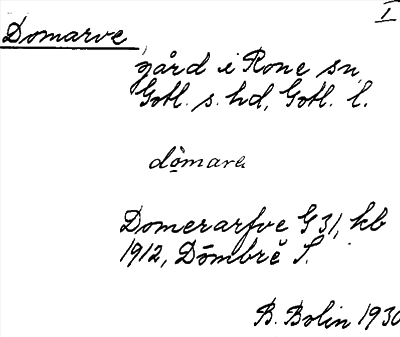 I
Domarve
gård i Rone sn,
Gotl. s. hd, Gotl. l.
dömara
Domerarfve G 31, kb
1912, Dōmbrĕ S.
B. Bolin 1930